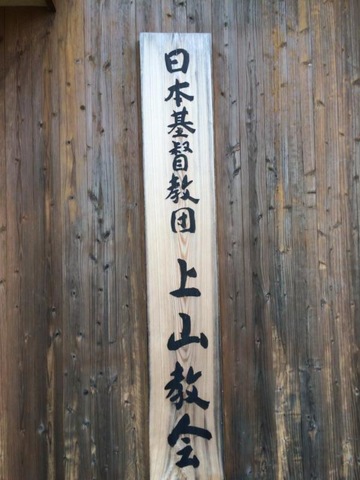 日本基督教団 上山教会